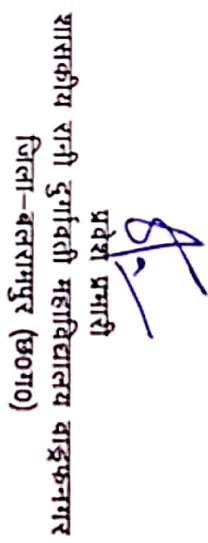 प्रवेश प्रभारी
शासकीय रानी दुर्गावती महाविद्यालय वाड्रफनगर
जिला-बलरामपुर (छ0ग0)